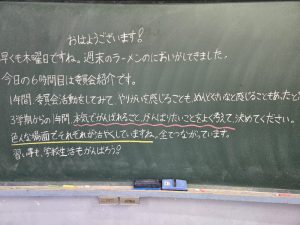 おはようございます!
早くも木曜日ですね。週末のラーメンのにおいがしてきました。
今日の6時間目は委員会紹介です。
1年間、委員会活動をしてみて、やりがいを感じることも、めんどくさいなと感じることもあったと
3学期からの1年間、本気でがんばれること、がんばりたいことをよく考えて決めてください。
色んな場面でそれぞれが活やくしていますね。全てつながっています。
習い事も、学校生活もがんばろう!